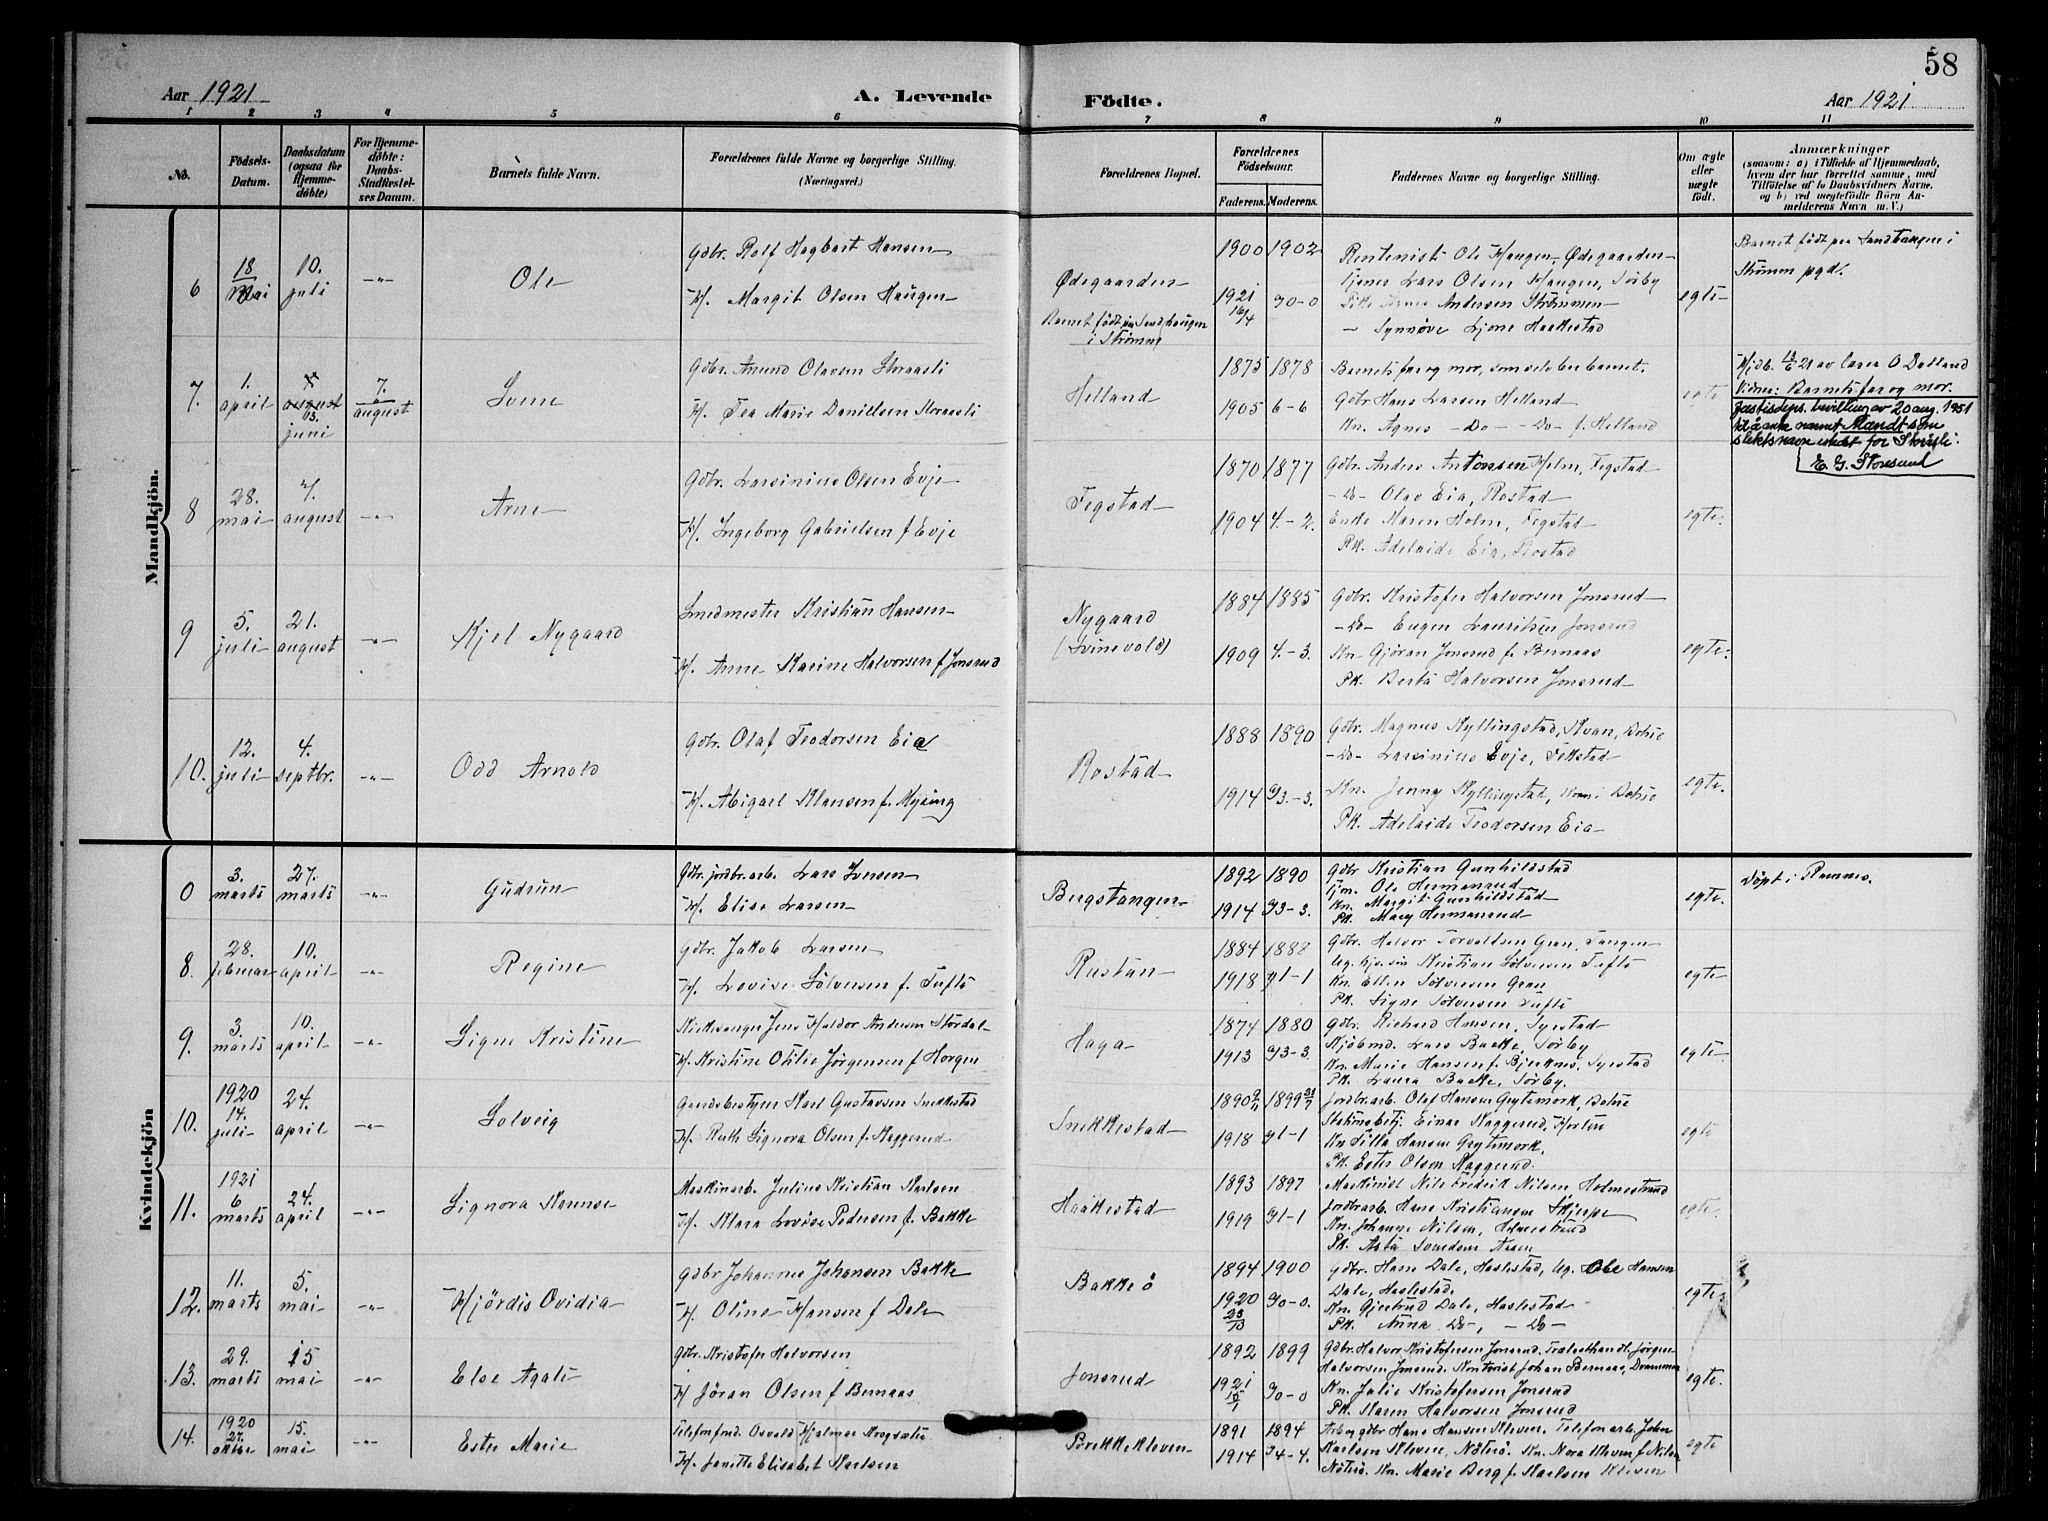 58
Aar 1921
A. Levende
Födte.
Aar 1921
1 2 3 4 5 6 7 8 9 10 11
No.
Födsels-Datum.
Daabsdatum (ogsaa for Hjemmedöbte)
For Hjemmedöbte: Daabs-Stadfæstelses Datum.
Barnets fulde Navn.
Forældrenes fulde Navne og borgerlige Stilling.
(Næringsvei.)
Forældrenes Bopæl.
Forældrenes Födselsaar.
Faderens. Moderens.
Faddernes Navne og borgerlige Stilling.
Om ægte eller uægte födt.
Anmærkninger
(saasom: a) i Tilfælde af Hjemmedaab,
hvem der har forrettet samme, med
Tilföielse af to Daabsvidners Navne.
og b) ved uægtefödte Börn An-
melderens Navn m. V.)
Mandkjön.
6 18 mai 10. juli -"- Ole
Gdbr. Rolf Hagbart Hansen
H. Margit Olsen Haugen
Ødegaarden
Barnet født paa Sandhaugen
i Strømm
1900 1902
1921 16/4 G0-0
Rentenist Ole Haugen, Ødegaarden
Tjener Lars Olsen Haugen, Sørby
Andersen Strømmen
- Synnøve Haakestad
egte
Barnet født paa Sandhaugen i
Strømm pgd.
7. 1. april 7. august 03. juni 7. august Svenn
Gdbr. Amund Olavsen Storaasli
H. Tea Marie Danielsen Storaasli
Helland
1875 1878
1905 6-6
Barnets far og mor, som selv ber barnet.
Gdbr Hans Larsen Helland
Kn. Agnes -Do- -Do- f. Helland
egte
Hjdb. 21 av O Dalland
Vidner: Barnets far og mor.
Justisdeps. bevilling av 20 aug. 1951
til å anta navnet Mandt som
slektsnavn istedet for Storåsli.
E. G. Storesund
8 28. mai 7. august -"- Arne
Gdbr. Larsinius Olsen Evje
H. Ingeborg Gabrielsen f Evje
Fegstad
1870 1877
1904 4.-2.
Gdbr. Anders Antonsen Holm, Fegstad
-Do- Olav Eia, Rostad
Enke Maren Holm, Fegstad
Pk. Adelaide Eia, Rostad
egte.
9 5. juli 21. august -"- Kjel Nygaard
Smedmester Kristian Hansen
H. Anne Karine Halvorsen f Jonsrud
Nygaard
(Svinevold)
1884 1885
1909 4.-3.
Gdbr. Kristofer Halvorsen Jonsrud
-Do- Eugen Lauritsen Jonsrud
Kn. Gjöran Jonsrud f. Bernaas
Pk. Berta Halvorsen Jonsrud
egte.
10. 12. juli 4. septbr. -"- Odd Arnold
Gdbr. Olaf Teodorsen Eia
H. Abigael Klausen f. Myring
Rostad
1888 1890
1914 G3.-3.
Gdbr. Magnus Kyllingstad, Kvan, Botne
-Do- Larsinius Evje, Fekstad
Kn. Jenny Kyllingstad, Botne
Pk. Adelaide Teodorsen Eia
egte.
Kvindekjön
0 3. marts 27. marts -"- Gudrun
Gdbr. jordbr.arb. Lars Iversen
H. Elise Larsen
Bergstangen
1892 1890
1914 G3-3.
Gdbr Kristian Gunhildstad
Tjm. Ole Hermansrud
Kn. Margit Gunhildstad
Pk. Mary Hermansrud
egte.
Døpt i Ramnes.
8. 28. februar 10. april -"- Regine
Gdbr. Jakob Larsen
H. Lovise Sölversen f. Tufte
Rustan
1884 1888
1918 G1-1
Gdbr. Halvor Torvaldsen Gran, Tangen
Ug. Kristian Sölversen Tufte
Kn. Ellen Sölversen Gran
Pk. Signe Sölversen Tufte
egte
9. 3. marts 10. april -"- Signe Kristine
Kirkesanger Jens Haldor Andersen Stordal
H. Kristine Otilie Jørgensen f Horgen
Haga
1874 1880
1913 G3-3.
Gdbr. Richard Hansen, Syrstad
Kjöbmd. Lars Bakke, Sørby
Kn. Marie Hansen f. Bjerknes, Syrstad
Pk. Laura Bakke, Sørby.
egte
10. 1920 14. juli 24. april -"- Solveig
Gaardsbestyrer Karl Gustavsen Snekkestad
H. Ruth Signora Olsen f. Kaggerud
Snekkestad
1890 9/11 1899 24/7
1918 G1-1
Jordbr.arb. Olaf Hansen Grytemork, Botne
Stationsbetj. Einar Kaggerud, Horten
Kn. Hansen Grytemork.
Pk. Ester Olsen Kaggerud.
egte
11. 1921 6 marts 24. april -"- Signora Hannse
Maskinarb. Julius Kristian Karlsen
H. Klara Lovise Pedersen f. Bakke
Haakestad
1893 1897
1919 G1-1
Maskinist Nils Fredrik Nilsen Holmestrand
Jordbr.arb. Hans Kristiansen Skjerpe
Kn. Johanne Nilsen, Holmestrand
Pk. Asta Svendsen Aasen
egte.
12. 11. marts 5. mai -"- Hjördis Ovidia
Gdbr Johannes Johansen Bakke
H. Oline Hansen f Dale
Bakke ö
1894 1900
1920 23/10 G0-0.
Gdbr. Hans Dale, Haslestad, Ug. Ole Hansen
Dale, Haslestad.
Kn. Gjertrud Dale, Haslestad
Pk. Anna Do-, -Do-
egte
13. 29. marts 15 mai -"- Else Agate
Gdbr. Kristofer Halvorsen
H Jöran Olsen f Bernaas
Jonsrud
1892 1899
1921 15/1 G0-0
Gdbr. Halvor Kristofersen Jonsrud. Trælasthandl. Jørgen
Halvorsen Jonsrud. Kontorist Johan Bernaas, Drammen
Kn. Julie Kristofersen Jonsrud
Pk. Karen Halvorsen Jonsrud
egte.
14. 1920 27. oktbr 15. mai -"- Ester Marie
Telefonfmd. Osvald Hjalmar Krogsæter
H. Janette Elisabet Karlsen
Brekkekleven
1891 1894
1914 G4-4.
Arb og gdbr Hans Hansen Kleven. Telefonarb. John
Karlsen Kleven, Nöterö. Kn. Nora Kleven f Nilsen
Nöterö. Kn. Marie Berg f. Karlsen Kleven
egte